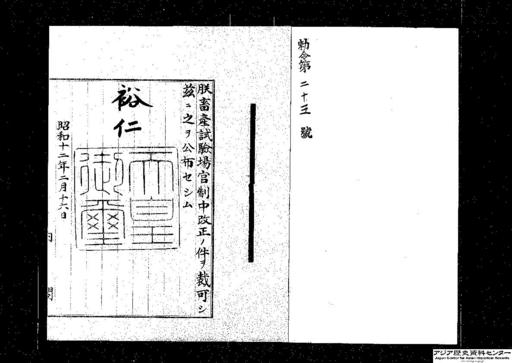 勅令第二十三號
朕畜產試驗場官制中改正ノ件ヲ裁可シ
茲ニ之ヲ公布セシム
裕仁
天皇御璽
昭和十二年二月十六日
内閣
アジア歴史資料センター
Japan Center for Asian Historical Records